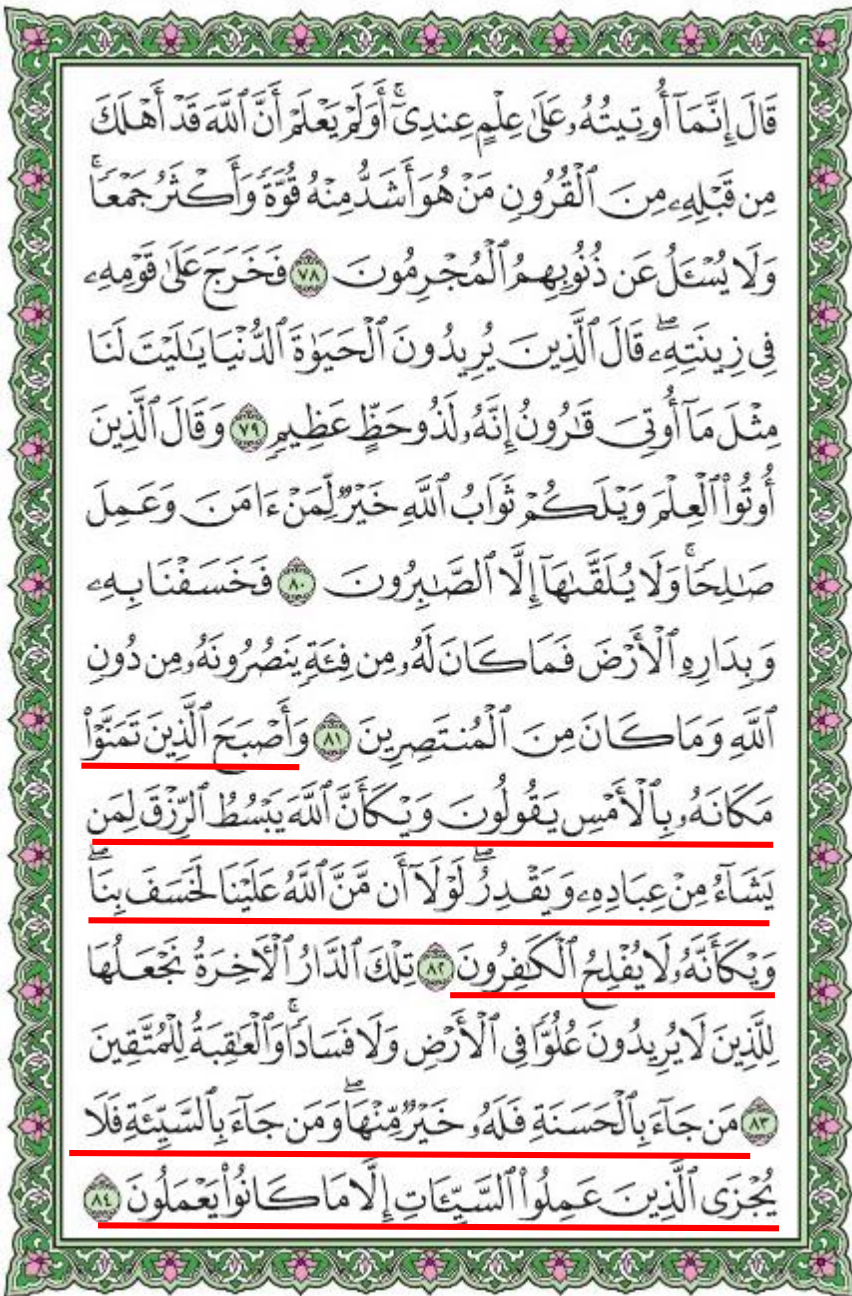 قَالَ إِنَّمَآ أُوتِيتُهُۥ عَلَىٰ عِلۡمٍ عِندِيٓۚ أَوَلَمۡ يَعۡلَمۡ أَنَّ ٱللَّهَ قَدۡ أَهۡلَكَ
مِن قَبۡلِهِۦ مِنَ ٱلۡقُرُونِ مَنۡ هُوَ أَشَدُّ مِنۡهُ قُوَّةٗ وَأَكۡثَرُ جَمۡعٗاۚ
وَلَا يُسۡـَٔلُ عَن ذُنُوبِهِمُ ٱلۡمُجۡرِمُونَ ٧٨ فَخَرَجَ عَلَىٰ قَوۡمِهِۦ
فِي زِينَتِهِۦۖ قَالَ ٱلَّذِينَ يُرِيدُونَ ٱلۡحَيَوٰةَ ٱلدُّنۡيَا يَٰلَيۡتَ لَنَا
مِثۡلَ مَآ أُوتِيَ قَٰرُونُ إِنَّهُۥ لَذُو حَظٍّ عَظِيمٖ ٧٩ وَقَالَ ٱلَّذِينَ
أُوتُواْ ٱلۡعِلۡمَ وَيۡلَكُمۡ ثَوَابُ ٱللَّهِ خَيۡرٞ لِّمَنۡ ءَامَنَ وَعَمِلَ
صَٰلِحٗاۚ وَلَا يُلَقَّىٰهَآ إِلَّا ٱلصَّٰبِرُونَ ٨٠ فَخَسَفۡنَا بِهِۦ
وَبِدَارِهِ ٱلۡأَرۡضَ فَمَا كَانَ لَهُۥ مِن فِئَةٖ يَنصُرُونَهُۥ مِن دُونِ
ٱللَّهِ وَمَا كَانَ مِنَ ٱلۡمُنتَصِرِينَ ٨١ وَأَصۡبَحَ ٱلَّذِينَ تَمَنَّوۡاْ
مَكَانَهُۥ بِٱلۡأَمۡسِ يَقُولُونَ وَيۡكَأَنَّ ٱللَّهَ يَبۡسُطُ ٱلرِّزۡقَ لِمَن
يَشَآءُ مِنۡ عِبَادِهِۦ وَيَقۡدِرُۖ لَوۡلَآ أَن مَّنَّ ٱللَّهُ عَلَيۡنَا لَخَسَفَ بِنَاۖ
وَيۡكَأَنَّهُۥ لَا يُفۡلِحُ ٱلۡكَٰفِرُونَ ٨٢ تِلۡكَ ٱلدَّارُ ٱلۡأٓخِرَةُ نَجۡعَلُهَا
لِلَّذِينَ لَا يُرِيدُونَ عُلُوّٗا فِي ٱلۡأَرۡضِ وَلَا فَسَادٗاۚ وَٱلۡعَٰقِبَةُ لِلۡمُتَّقِينَ
٨٣ مَن جَآءَ بِٱلۡحَسَنَةِ فَلَهُۥ خَيۡرٞ مِّنۡهَاۖ وَمَن جَآءَ بِٱلسَّيِّئَةِ فَلَا
يُجۡزَى ٱلَّذِينَ عَمِلُواْ ٱلسَّيِّـَٔاتِ إِلَّا مَا كَانُواْ يَعۡمَلُونَ ٨٤